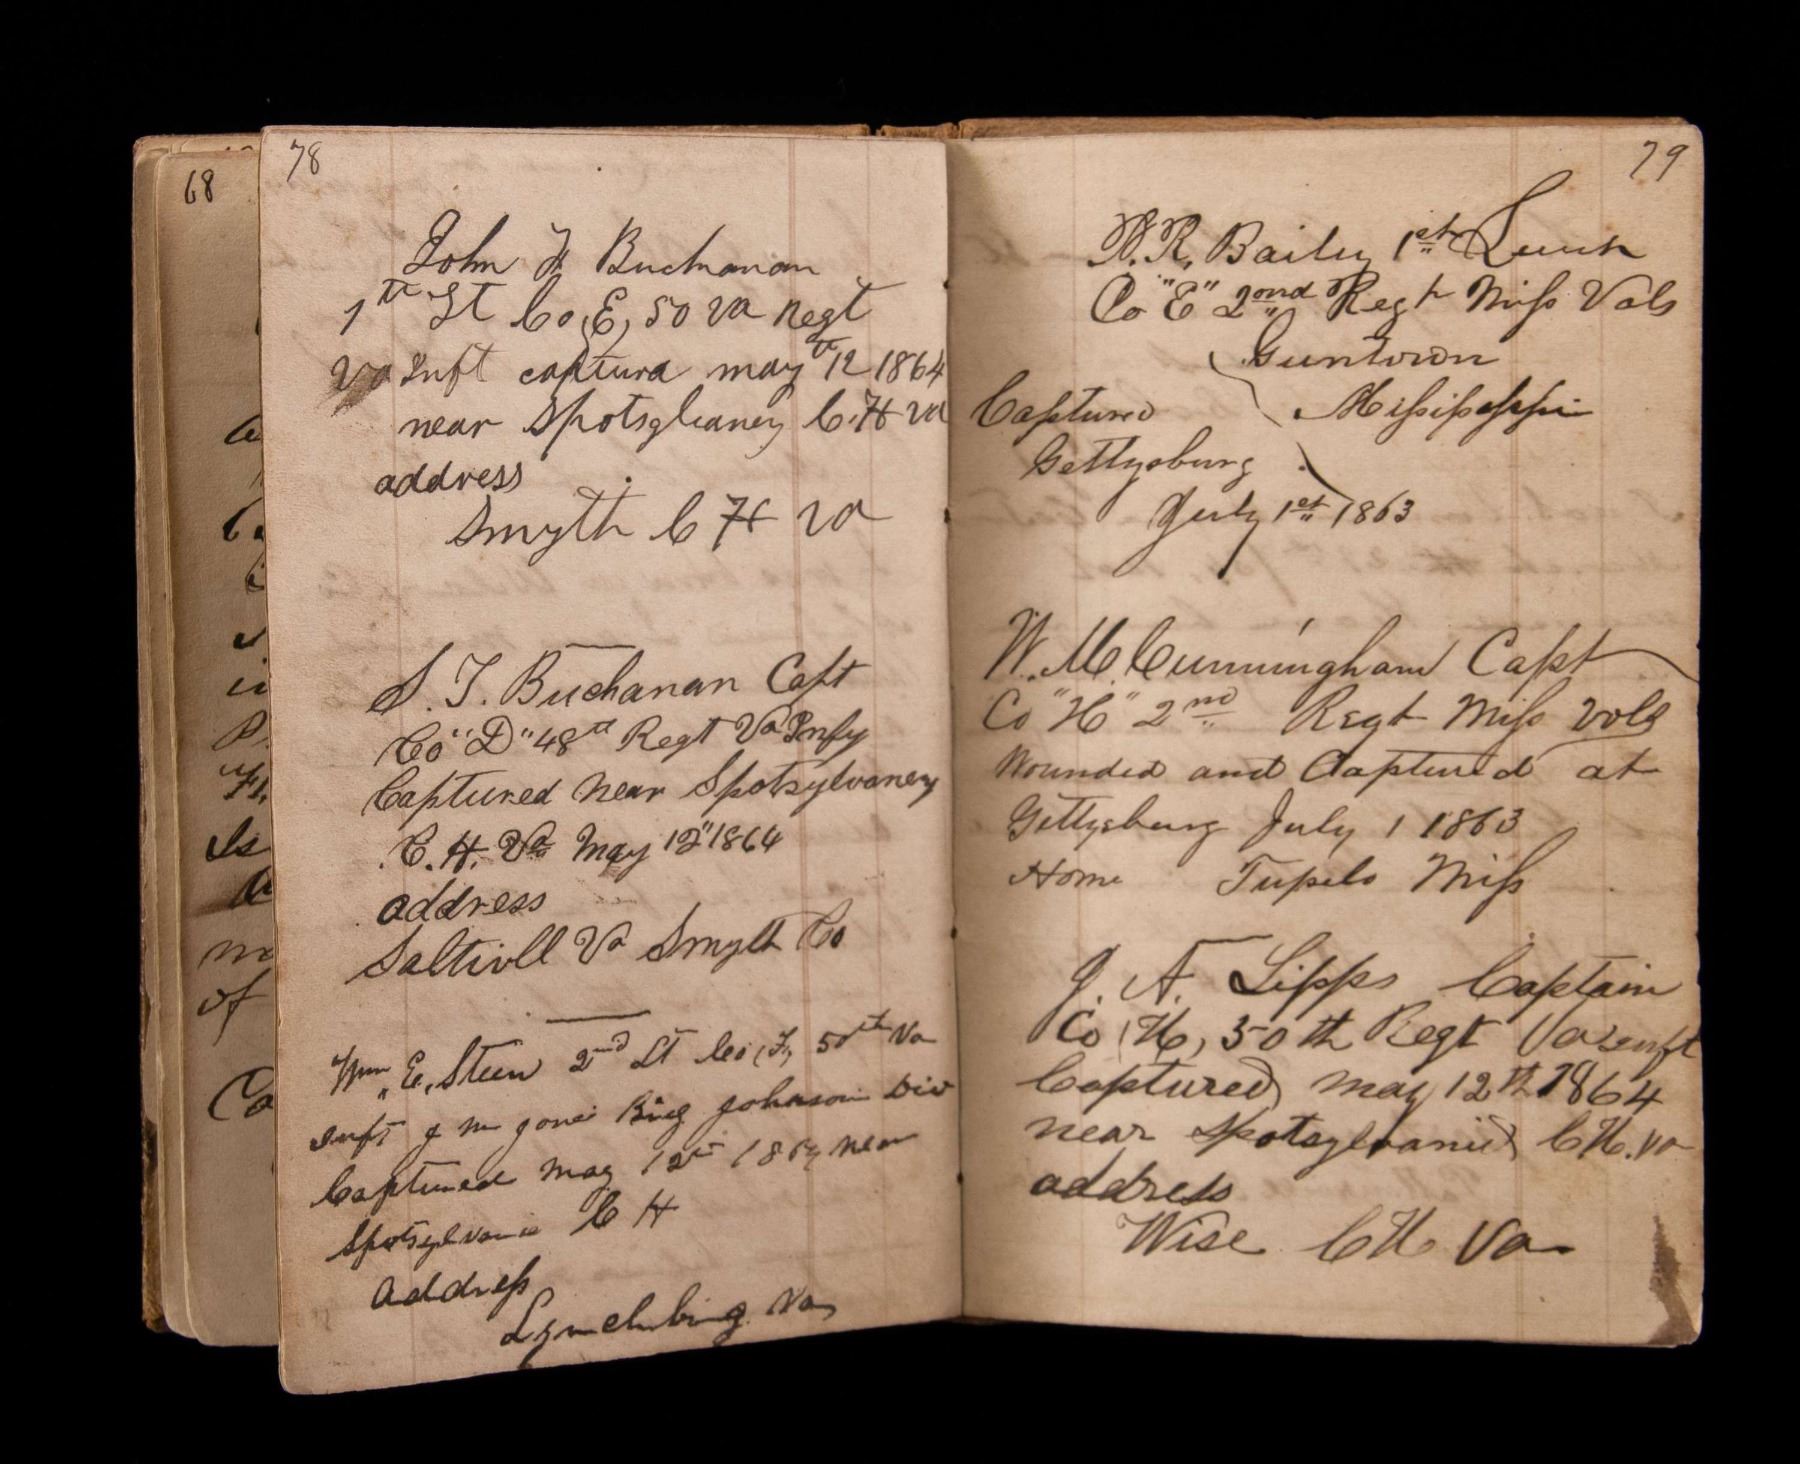 68
78
John H Buchanan
1th Lt Co, E, 50 va Regt
va Inft captura may th 12 1864
near Spotsylvaney C. H va
address
Smyth C H va
S. T. Buchanan Capt
Co "D" 48th Regt Va Infy
Captured near Spotsylvaney
C. H. Va May 12" 1864
address
Saltivll Va Smyth Co
Wm, E, Steen 2nd Lt Co, F, 50th Va
Inft J m gones Brig Johnson Div
Captured May 12th 1864 near
Spotsylvania C H
address
Lynchburg Va
79
R. Baily 1st Lieut
Co "E" 2ond Regt Miss Vols
Guntown
Captured Mississeppi
Gettysburg
July 1st 1863
W. M. Cunningham Capt
Co "H" 2nd Regt Miss Vols
Wounded and Captured at
Gettysburg July 1 1863
Home Tupelo Miss
J. A. Lipps Captain
Co, H, 50th Regt Va Inft
Captured may 12th 1864
near Spotsylvania C H. va
address
Wise C H Va